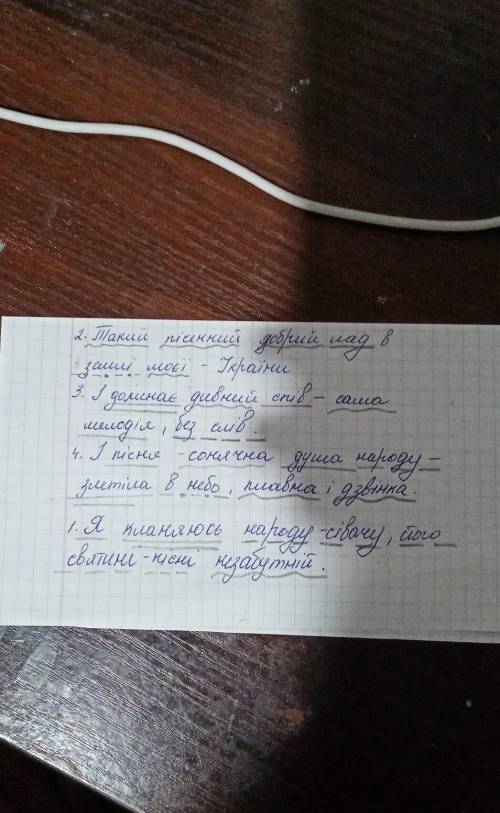 2. Такий пісенний добрий лад в
землі моєї - України
3. І долинає дивний спів - сама
мелодія, без слів.
4. І пісня - сонячна душа народу -
злетіла в небо, плавна і дзвінка.
1. Я кланяюсь народу-сівачу, його
святині-пісні незабутній.